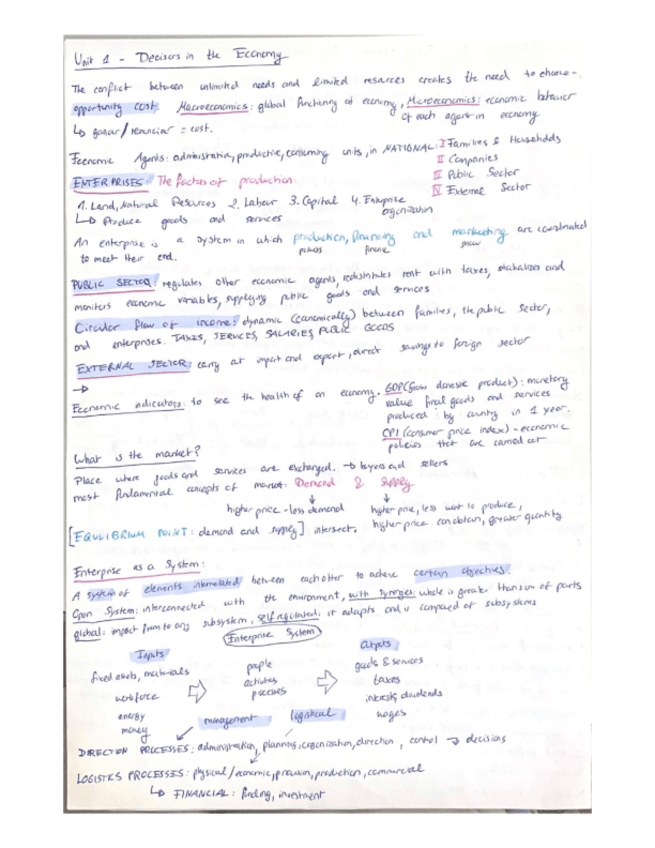 Unit 1 - Decisions in the Economy
The conflict between unlimited needs and limited resources creates the need to choose -
opportunity cost. Macroeconomics: global functioning of economy, Microeconomics: economic behavior
↳ ganar/renunciar = cost. of each agent in economy
Economic Agents: administrative, productive, consuming units, in NATIONAL: I Families & Households
II Companies
III Public Sector
IV External Sector
ENTERPRISES: The factors of production:
1. Land, Natural Resources 2. Labour 3. Capital 4. Enterprise
organization
↳ Produce goods and services
An enterprise is a system in which production, financing and marketing are coordinated
finance
to meet their end.
PUBLIC SECTOR: regulates other economic agents, redistributes rent with taxes, stabalizes and
monitors economic variables, supplying public goods and services
Circular flow of income: dynamic (economically) between families, the public sector,
and enterprises. TAXES, SERVICES, SALARIES, PUBLIC GOODS
EXTERNAL SECTOR: carry out import and export, direct savings to foreign sector
→
Economic indicators: to see the health of an economy. GDP (gross domestic product): monetary
value final goods and services
produced by country in 1 year.
CPI (consumer price index) - economic
policies that are carried out
What is the market?
Place where goods and services are exchanged. → buyers and sellers
most fundamental concepts of market: Demand & Supply
higher price - less demand
higher price, less want to produce,
higher price can obtain, greater quantity
[EQUILIBRIUM POINT: demand and supply] intersect.
Enterprise as a System:
A system of elements interrelated between each other to achieve certain objectives.
Open System: interconnected with the environment, with synergies: whole is greater than sum of parts
global: impact from to any subsystem, self regulated: it adapts and is composed of subsystems
Enterprise System
Inputs
fixed assets, materials
workforce
energy
money
people
activities
processes
Outputs
goods & services
taxes
interests, dividends
wages
management logistical
DIRECTION PROCESSES: administration, planning, organization, direction, control → decisions
LOGISTICS PROCESSES: physical/economic, provision, production, commercial
↳ FINANCIAL: funding, investment